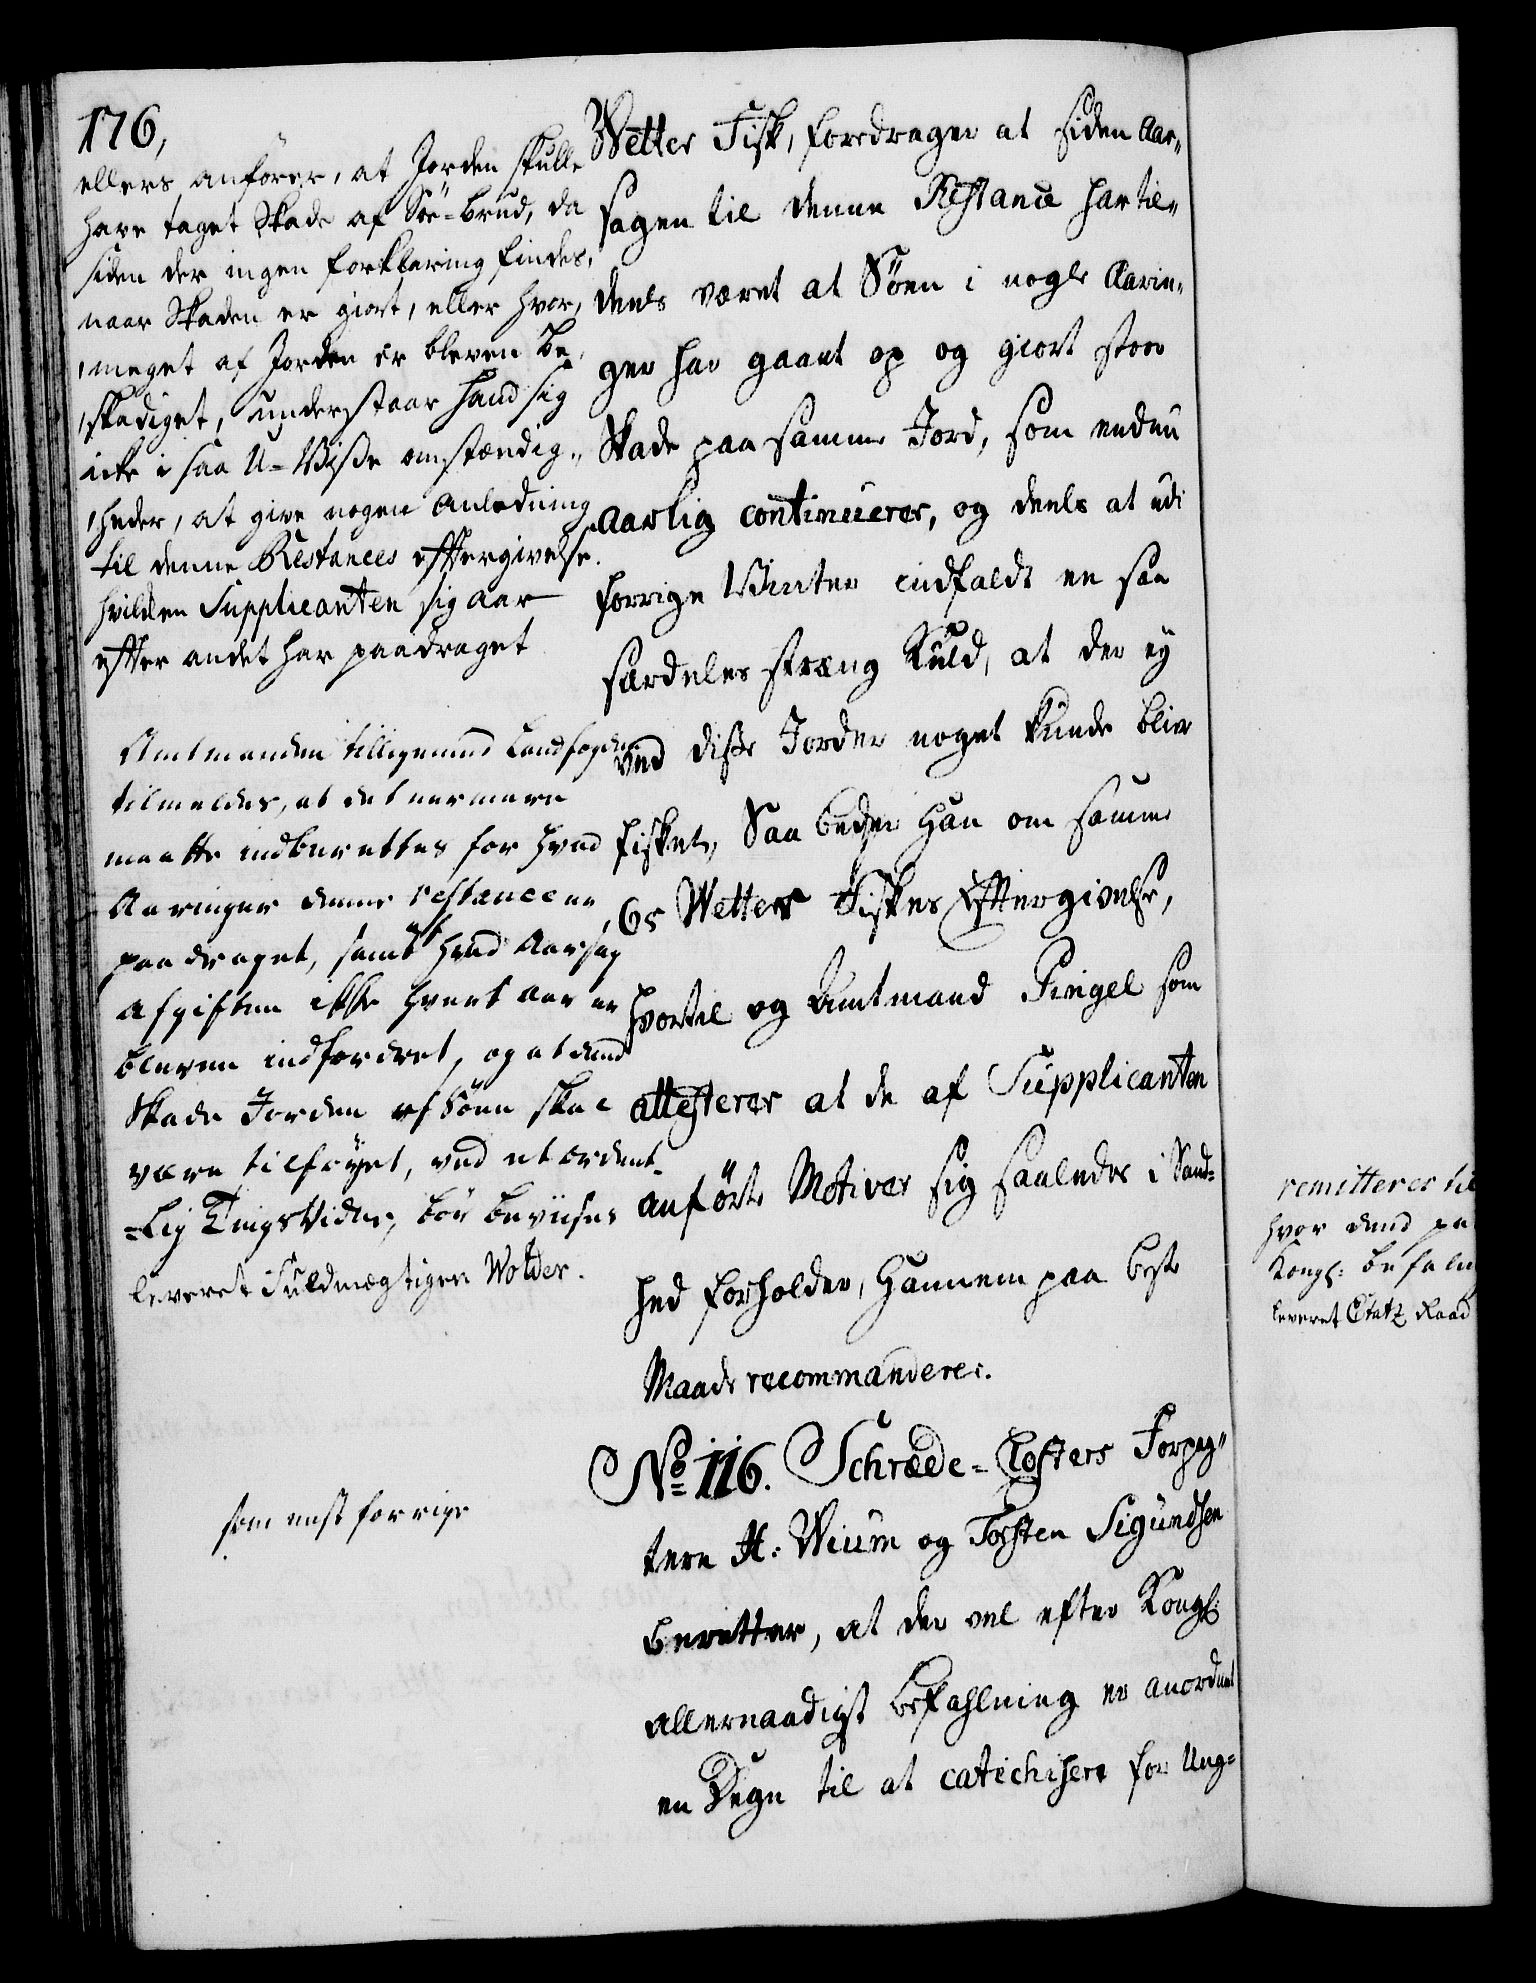 176,
ellers anfører, at Jorden skulle
have taget Skade af Söe-brud, da
siden der ingen forklaring findes,
naar Skaden er giort, eller hvor,
meget af Jorden er bleven be,
skadiget, understaar hand sig
icke i saa U-Viße omstændig,,
heder, at give nogen anledning
til denne Restances efftergivelse.
hvilken Supplicanten sig aar
effter andet har paadraget
Amtmanden tilligemed Landfogden
tilmeldes, at det nermere
maatte indberettes for hvad
Aaringer denne restance er
paadraget, samt af hvad Aarsag
afgiften ikke hvert aar er
bleven indfordret, og at dend
Skade Jorden af Söen skal
være tilföyet, ved et ordent-
-lig TingsVidne, bör beviises
leveret Fuldmægtigen Wolder.
som næst forrige
Wetter Fisk, foredrager at siden Aar,,
sagen til denne Restance har til,,
deels været at Söen i nogle Aarin,,
ger har gaaet op og giort stor
Skade paa samme Jord, som endnu
aarlig continuerer, og deels at udi
forrige Vinter indfaldt en saa
særdeles stræng Kuld, at der ey
ved disse Jorder noget kunde blive
fisket, Saa beder Han om samme
65 Wetter Fiskes Efftergivelse,
hvortil og Amtmand Pingel som
attesterer at de af Supplicanten
anförte Motiver sig saaledes i Sand-
hed forholder, Hannem paa beste
Maade recommanderer.
No 116. Schrede-Closters Forpag,,
tere H: Wium og Torsten Sigundsen
beretter, at der vel efter Kongl:
allernaadigst befahlning er anordnet
en Degn til at catechisere for Ung-
remitteres til
hvor dend pa
Kongl: befaln
leveret Etatz Raad